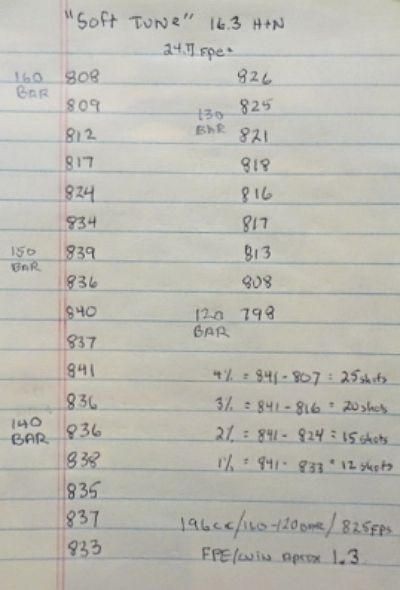 "SOFT TUNE" 16.3 H+N
24.7 FPE.
160 BAR 808
809
812
817
824
834
150 BAR 839
836
840
837
841
836
140 BAR 836
838
835
837
833
826
130 BAR 825
821
818
816
817
813
808
120 BAR 798
4% = 841 - 807 = 25 shots
3% = 841 - 816 = 20 shots
2% = 841 - 824 = 15 shots
1% = 841 - 833 = 12 shots
196cc/160-120 BAR/825 FPS
FPE/cuin Aprox 1.3